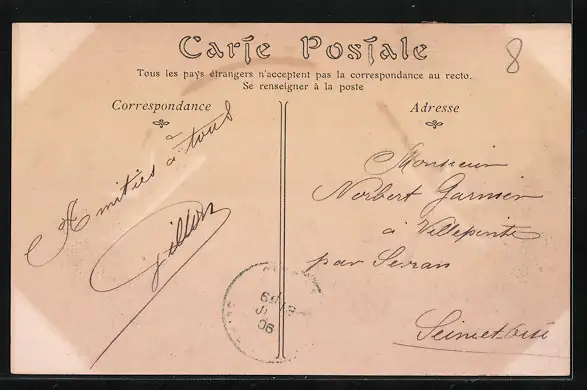 Carte Postale
8
Tous les pays étrangers n'acceptent pas la correspondance au recto.
Se renseigner à la poste
Correspondance
Adresse
Amitiés à tous
Monsieur
Norbert Garnier
à Villepinte
par Sevran
Seine et Oise